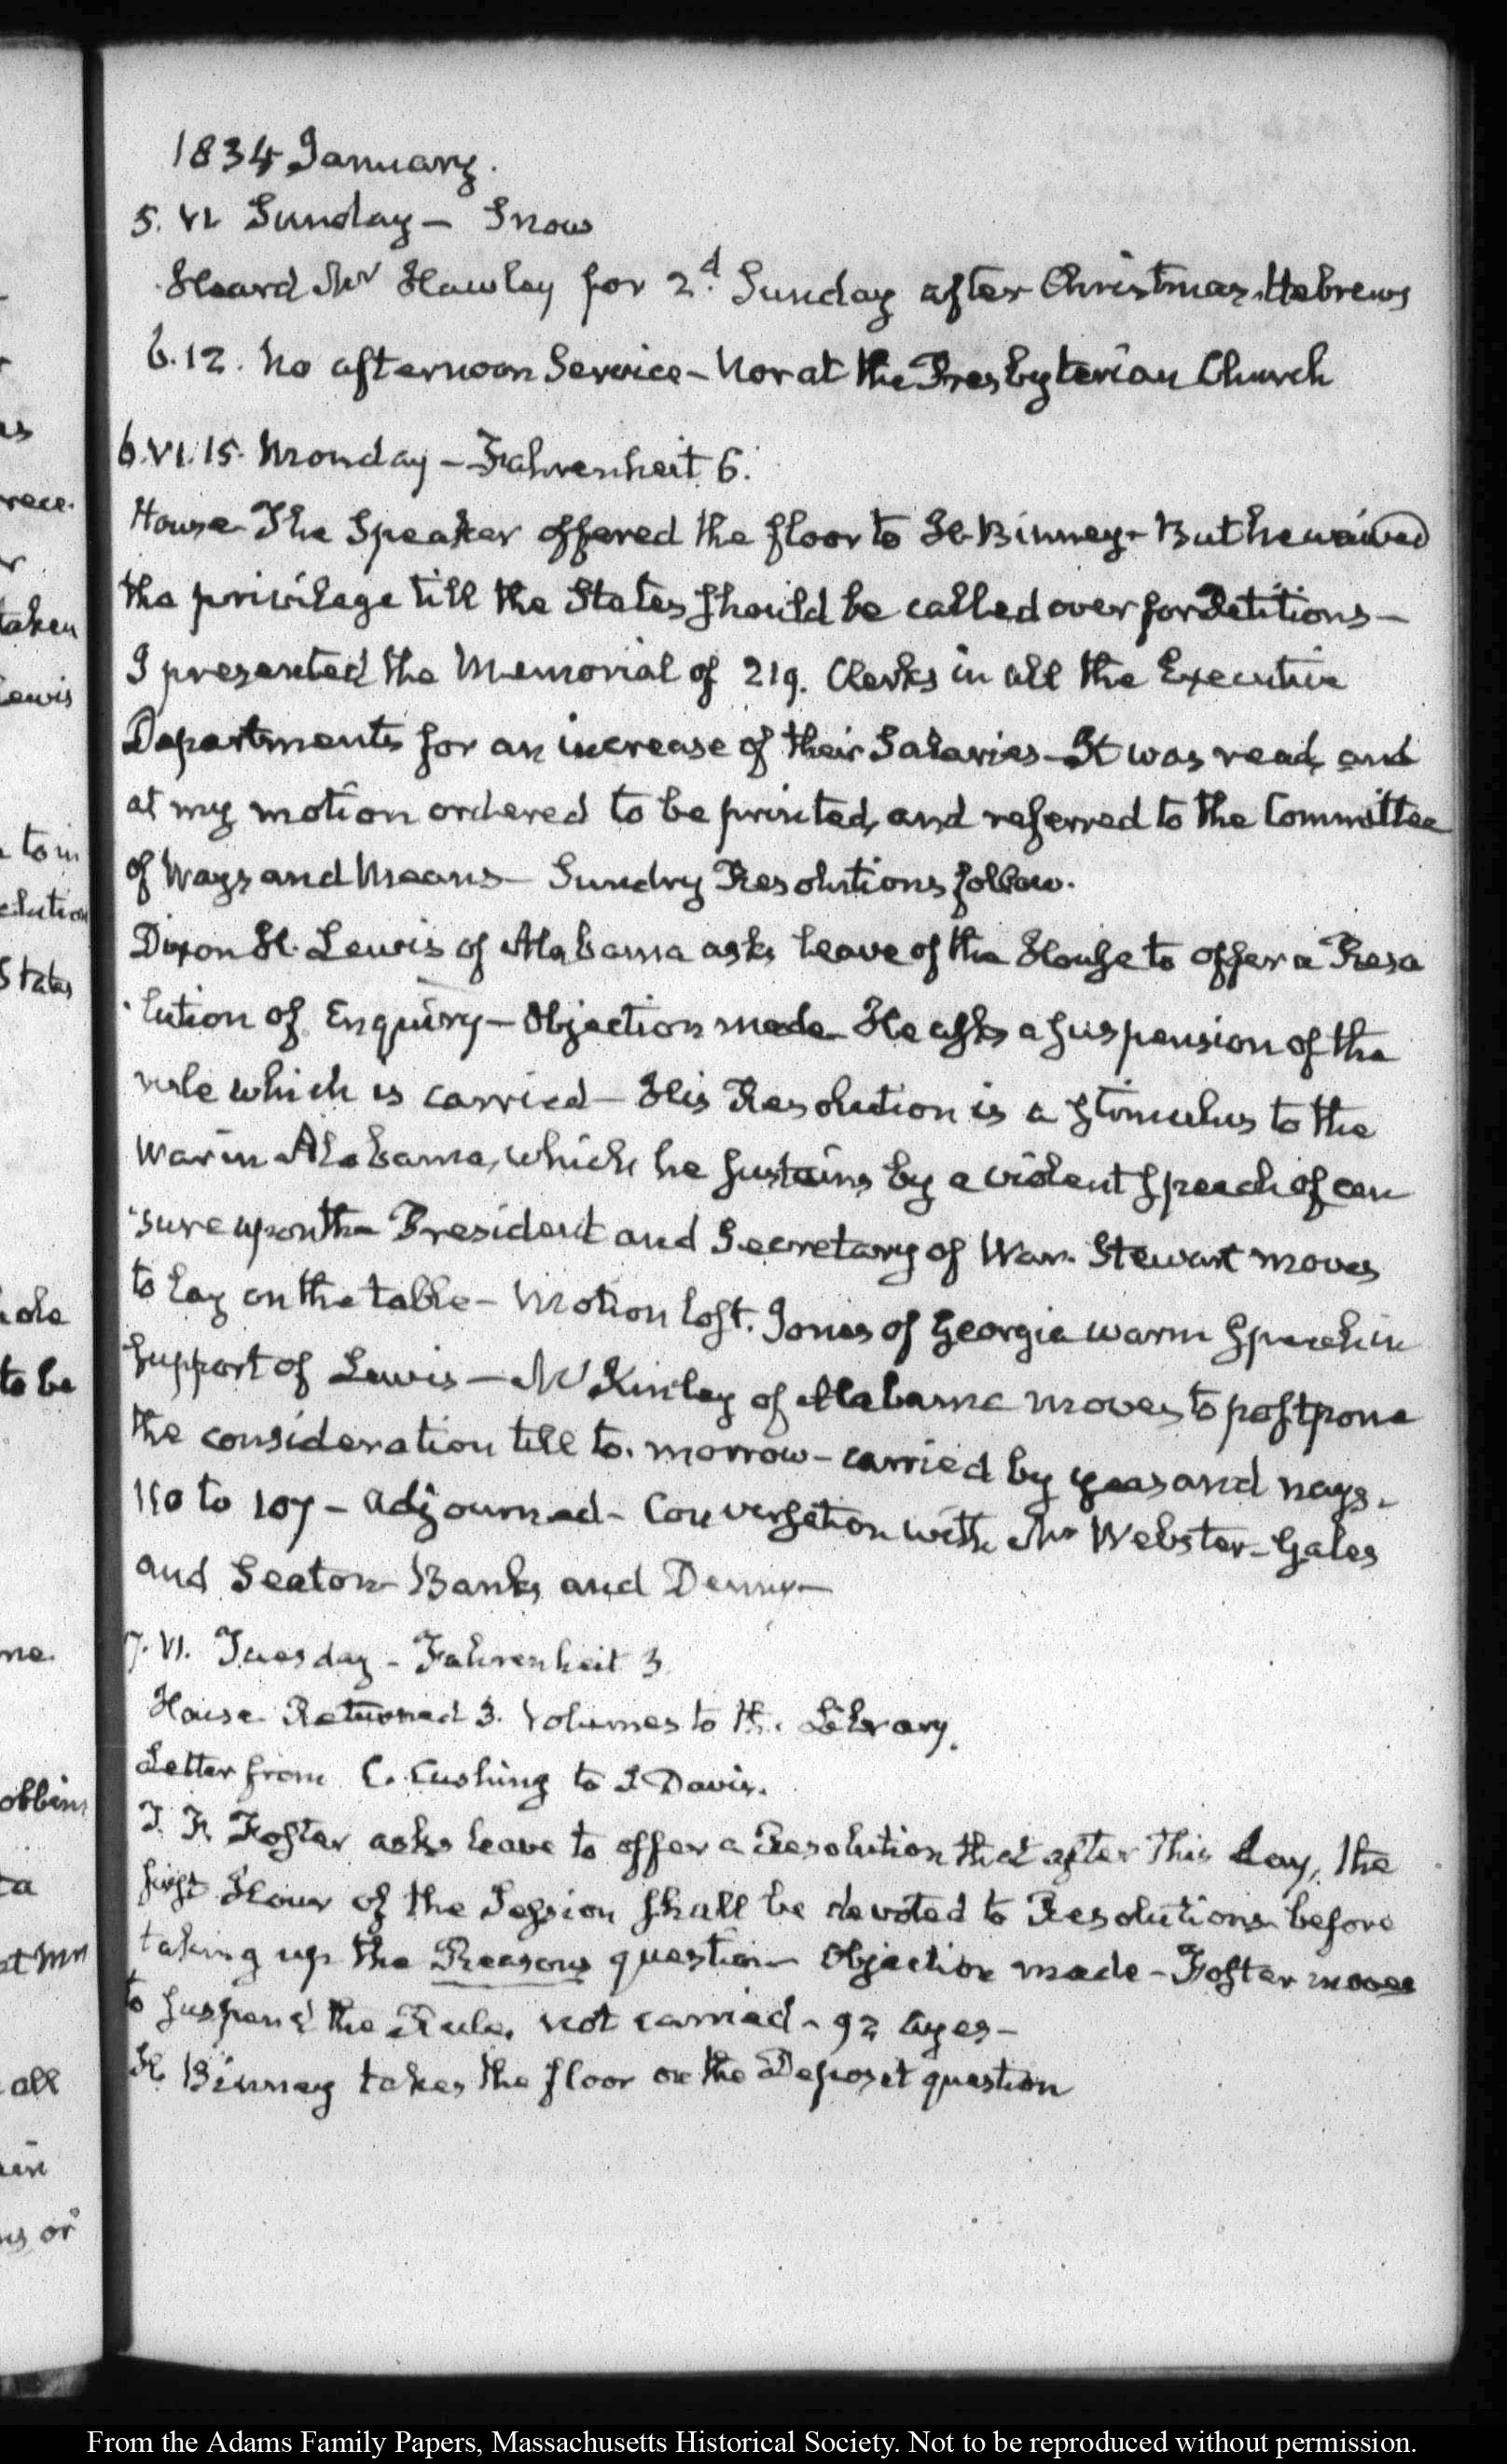 1834 January.
5. VI. Sunday – Snow
Heard Mr Hawley for 2d. Sunday after Christmas. Hebrews
6.12. No afternoon Service – Nor at the Presbyterian Church
6. VI.15. Monday – Fahrenheit 6.
House – The Speaker offered the floor to H. Binney – But he waived
the privilege till the States should be called over for Petitions –
I presented the Memorial of 219. Clerks in all the Executive
Departments for an increase of their Salaries – It was read, and
at my motion ordered to be printed, and referred to the Committee
of Ways and Means – Sundry Resolutions follow.
Dixon H. Lewis of Alabama asks leave of the House to offer a Reso
lution of Enquiry – Objection made – He asks a suspension of the
rule which is carried – His Resolution is a stimulus to the
War in Alabama, which he sustains by a violent speech of cen
sure upon the President and Secretary of War. Stewart moves
to lay on the table – Motion lost. Jones of Georgia warm speech in
support of Lewis – McKinley of Alabama moves to postpone
the consideration till to-morrow – carried by yeas and nays.
110 to 107 – adjourned – Conversation with Mr Webster – Gales
and Seaton – Banks and Denny –
7. VI. Tuesday – Fahrenheit 3
House – Returned 3. Volumes to the Library.
Letter from C. Cushing to J Davis.
T. F. Foster asks leave to offer a Resolution that after this day, the
first Hour of the Session shall be devoted to Resolutions before
taking up the Reasons question – Objection made – Foster moves
to suspend the Rule. not carried – 92 ayes –
H. Binney takes the floor on the Deposit question
rece.
taken
Lewis
lution
States
to be
all
From the Adams Family Papers, Massachusetts Historical Society. Not to be reproduced without permission.